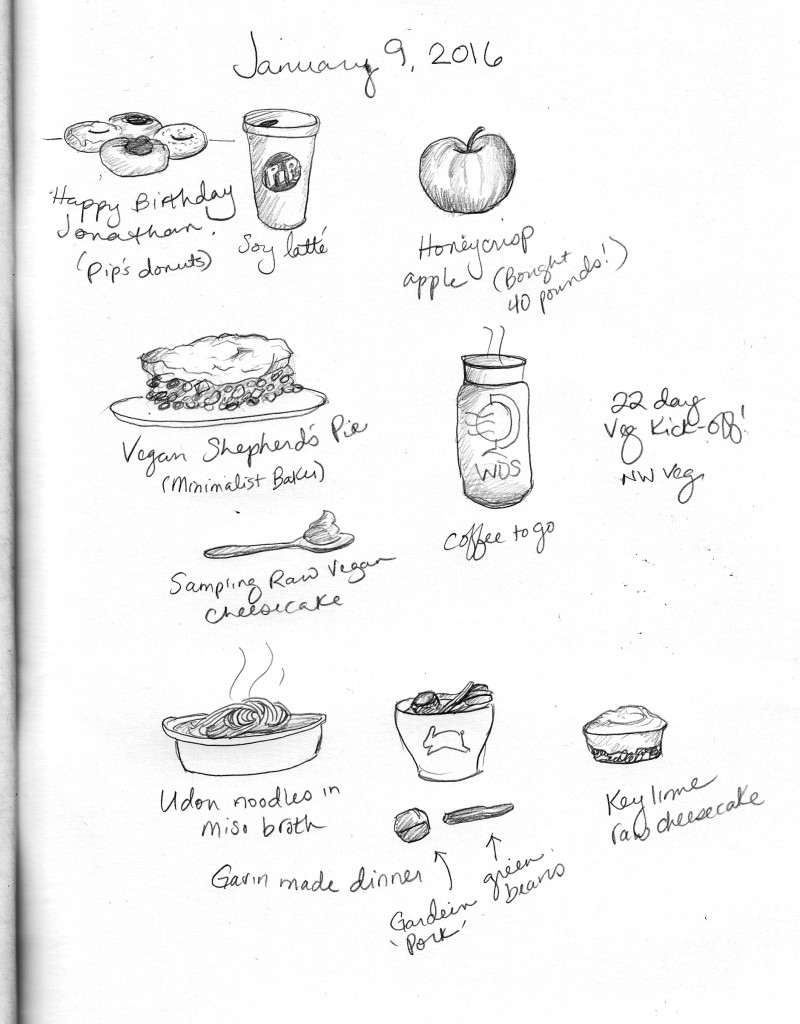 January 9, 2016
Happy Birthday
Jonathan.
(Pip's donuts)
PIP
Soy latté
Honeycrisp
apple (Bought
40 pounds!)
Vegan Shepherd's Pie
(Minimalist Baker)
WDS
coffee to go
22 day
Veg Kick-off!
NW Veg
Sampling Raw Vegan
cheesecake
Udon noodles in
miso broth
Gavin made dinner
Gardein
'Pork'
green
beans
Key lime
raw cheesecake